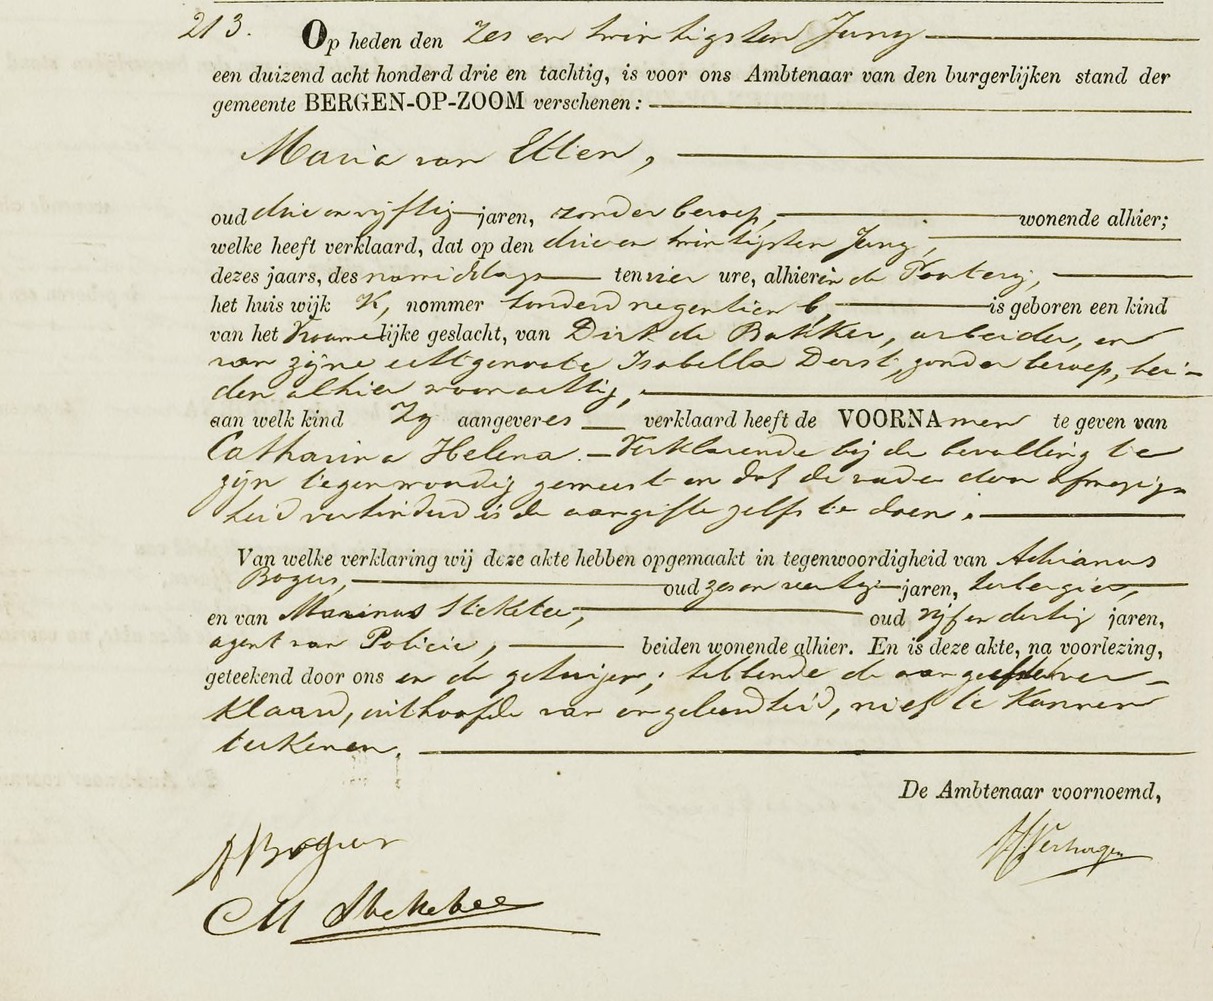 213. Op heden den zes en twintigsten Juny
een duizend acht honderd drie en tachtig, is voor ons Ambtenaar van den burgerlijken stand der
gemeente BERGEN-OP-ZOOM verschenen:
Maria van Etten,
oud drie en vijftig jaren, zonder beroep, wonende alhier;
welke heeft verklaard, dat op den drie en twintigsten Juny,
dezes jaars, des namiddags ten vier ure, alhier in de
het huis wijk K, nommer honderd negentien b, is geboren een kind
van het vrouwelijke geslacht, van Dirk de Bakker, arbeider, en
van zijne echtgenoote Isabella Derst, zonder beroep, bei-
den alhier woonachtig,
aan welk kind zy aangeveres verklaard heeft de VOORNAmen te geven van
Catharina Helena. Verklarende bij de bevalling te
zijn tegenwoordig geweest en dat de vader door afwezig-
heid verhinderd is de aangifte zelf te doen.
Van welke verklaring wij deze akte hebben opgemaakt in tegenwoordigheid van Adrianus
Bogers, oud zes en veertig jaren,
en van Marinus Steketee, oud vijf en dertig jaren,
agent van Policie, beiden wonende alhier. En is deze akte, na voorlezing,
geteekend door ons en de getuigen; hebbende de aangeefster ver-
klaard, uithoofde van ongeleerdheid, niet te kunnen
teekenen.
De Ambtenaar voornoemd,
A Bogers
M Steketee